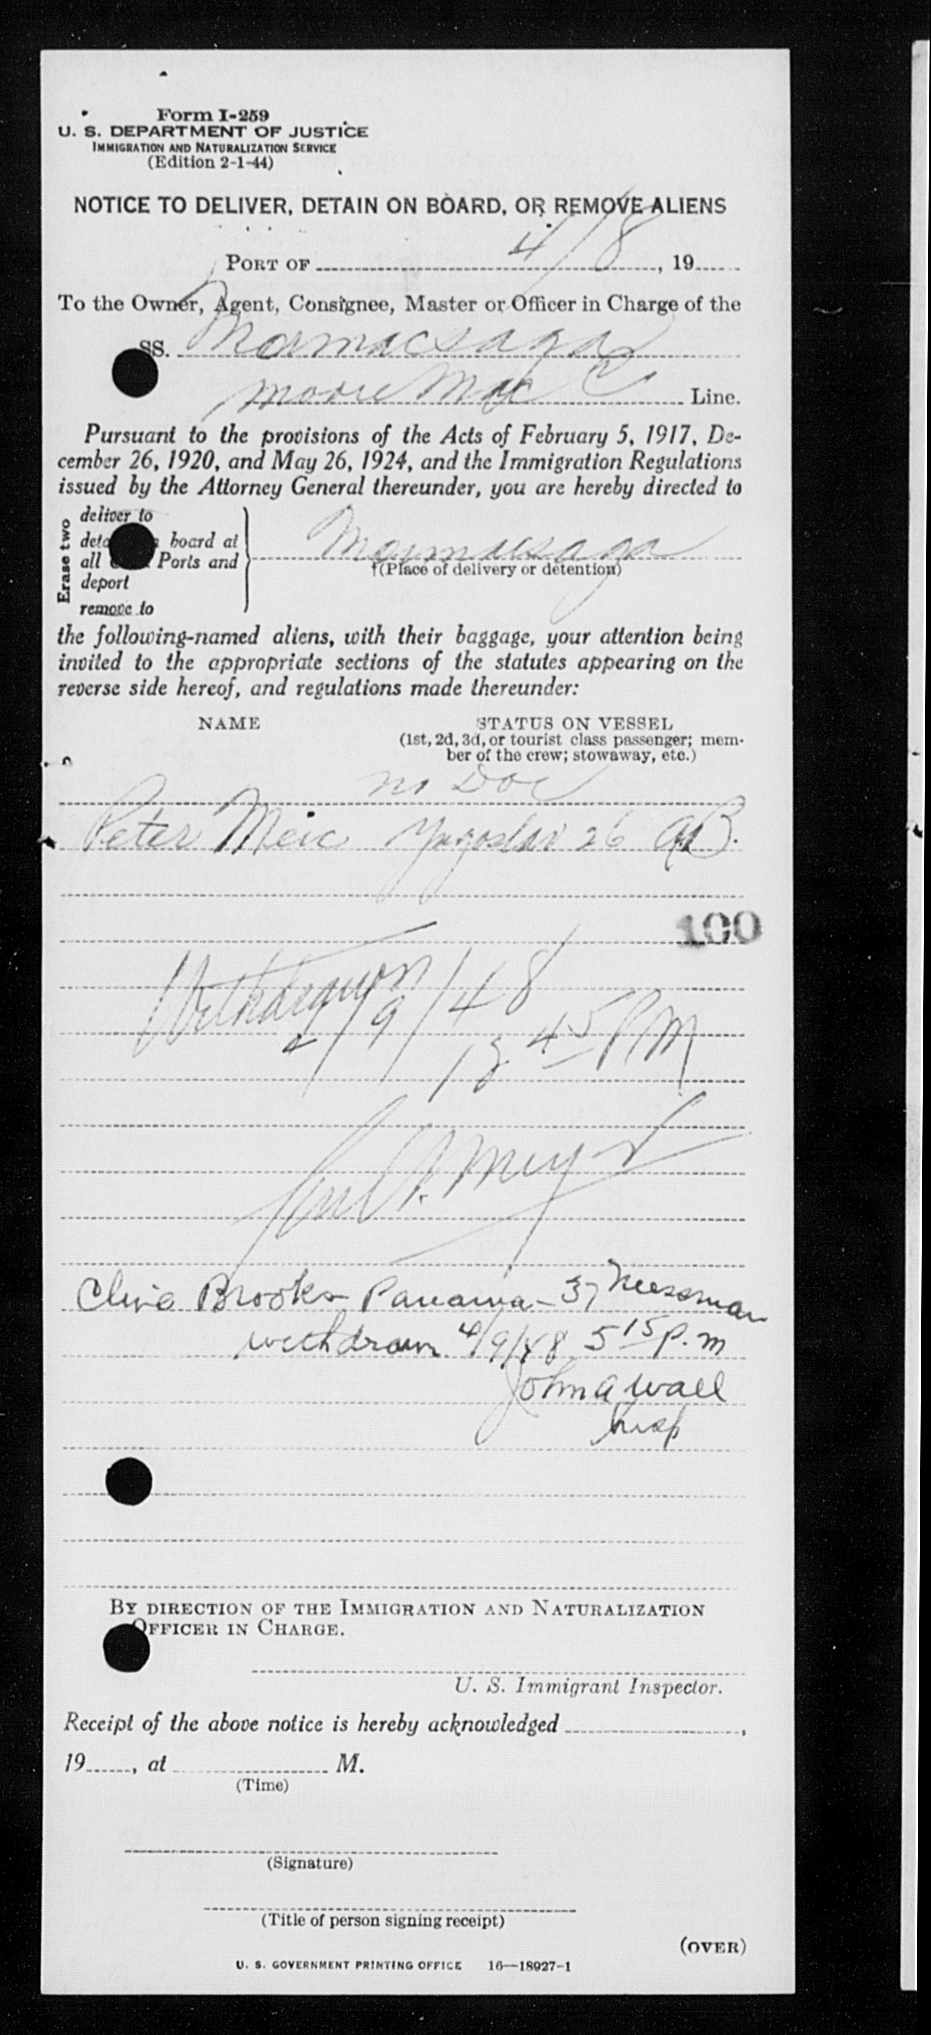 Form I-259
U. S. DEPARTMENT OF JUSTICE
IMMIGRATION AND NATURALIZATION SERVICE
(Edition 2-1-44)
NOTICE TO DELIVER, DETAIN ON BOARD, OR REMOVE ALIENS
PORT OF 4/8, 19
To the Owner, Agent, Consignee, Master or Officer in Charge of the
SS. Mormacsaga
Moore Mac Line.
Pursuant to the provisions of the Acts of February 5, 1917, De-
cember 26, 1920, and May 26, 1924, and the Immigration Regulations
issued by the Attorney General thereunder, you are hereby directed to
Erase two
deliver to
board at
all Ports and
deport
remove to
Mormacsaga
†(Place of delivery or detention)
the following-named aliens, with their baggage, your attention being
invited to the appropriate sections of the statutes appearing on the
reverse side hereof, and regulations made thereunder:
NAME STATUS ON VESSEL
(1st, 2d, 3d, or tourist class passenger; mem-
ber of the crew; stowaway, etc.)
no Doc
Peter Meic Yugoslav 26 A.B.
100
Withdrawn
4/9/48
12 45 PM
Clive Brooks Panama - 37 Messman
withdrawn 4/9/48 5 15 P.m
John A Wall
Insp
BY DIRECTION OF THE IMMIGRATION AND NATURALIZATION
OFFICER IN CHARGE.
U. S. Immigrant Inspector.
Receipt of the above notice is hereby acknowledged ,
19 , at M.
(Time)
(Signature)
(Title of person signing receipt)
(OVER)
U. S. GOVERNMENT PRINTING OFFICE 16—18927-1